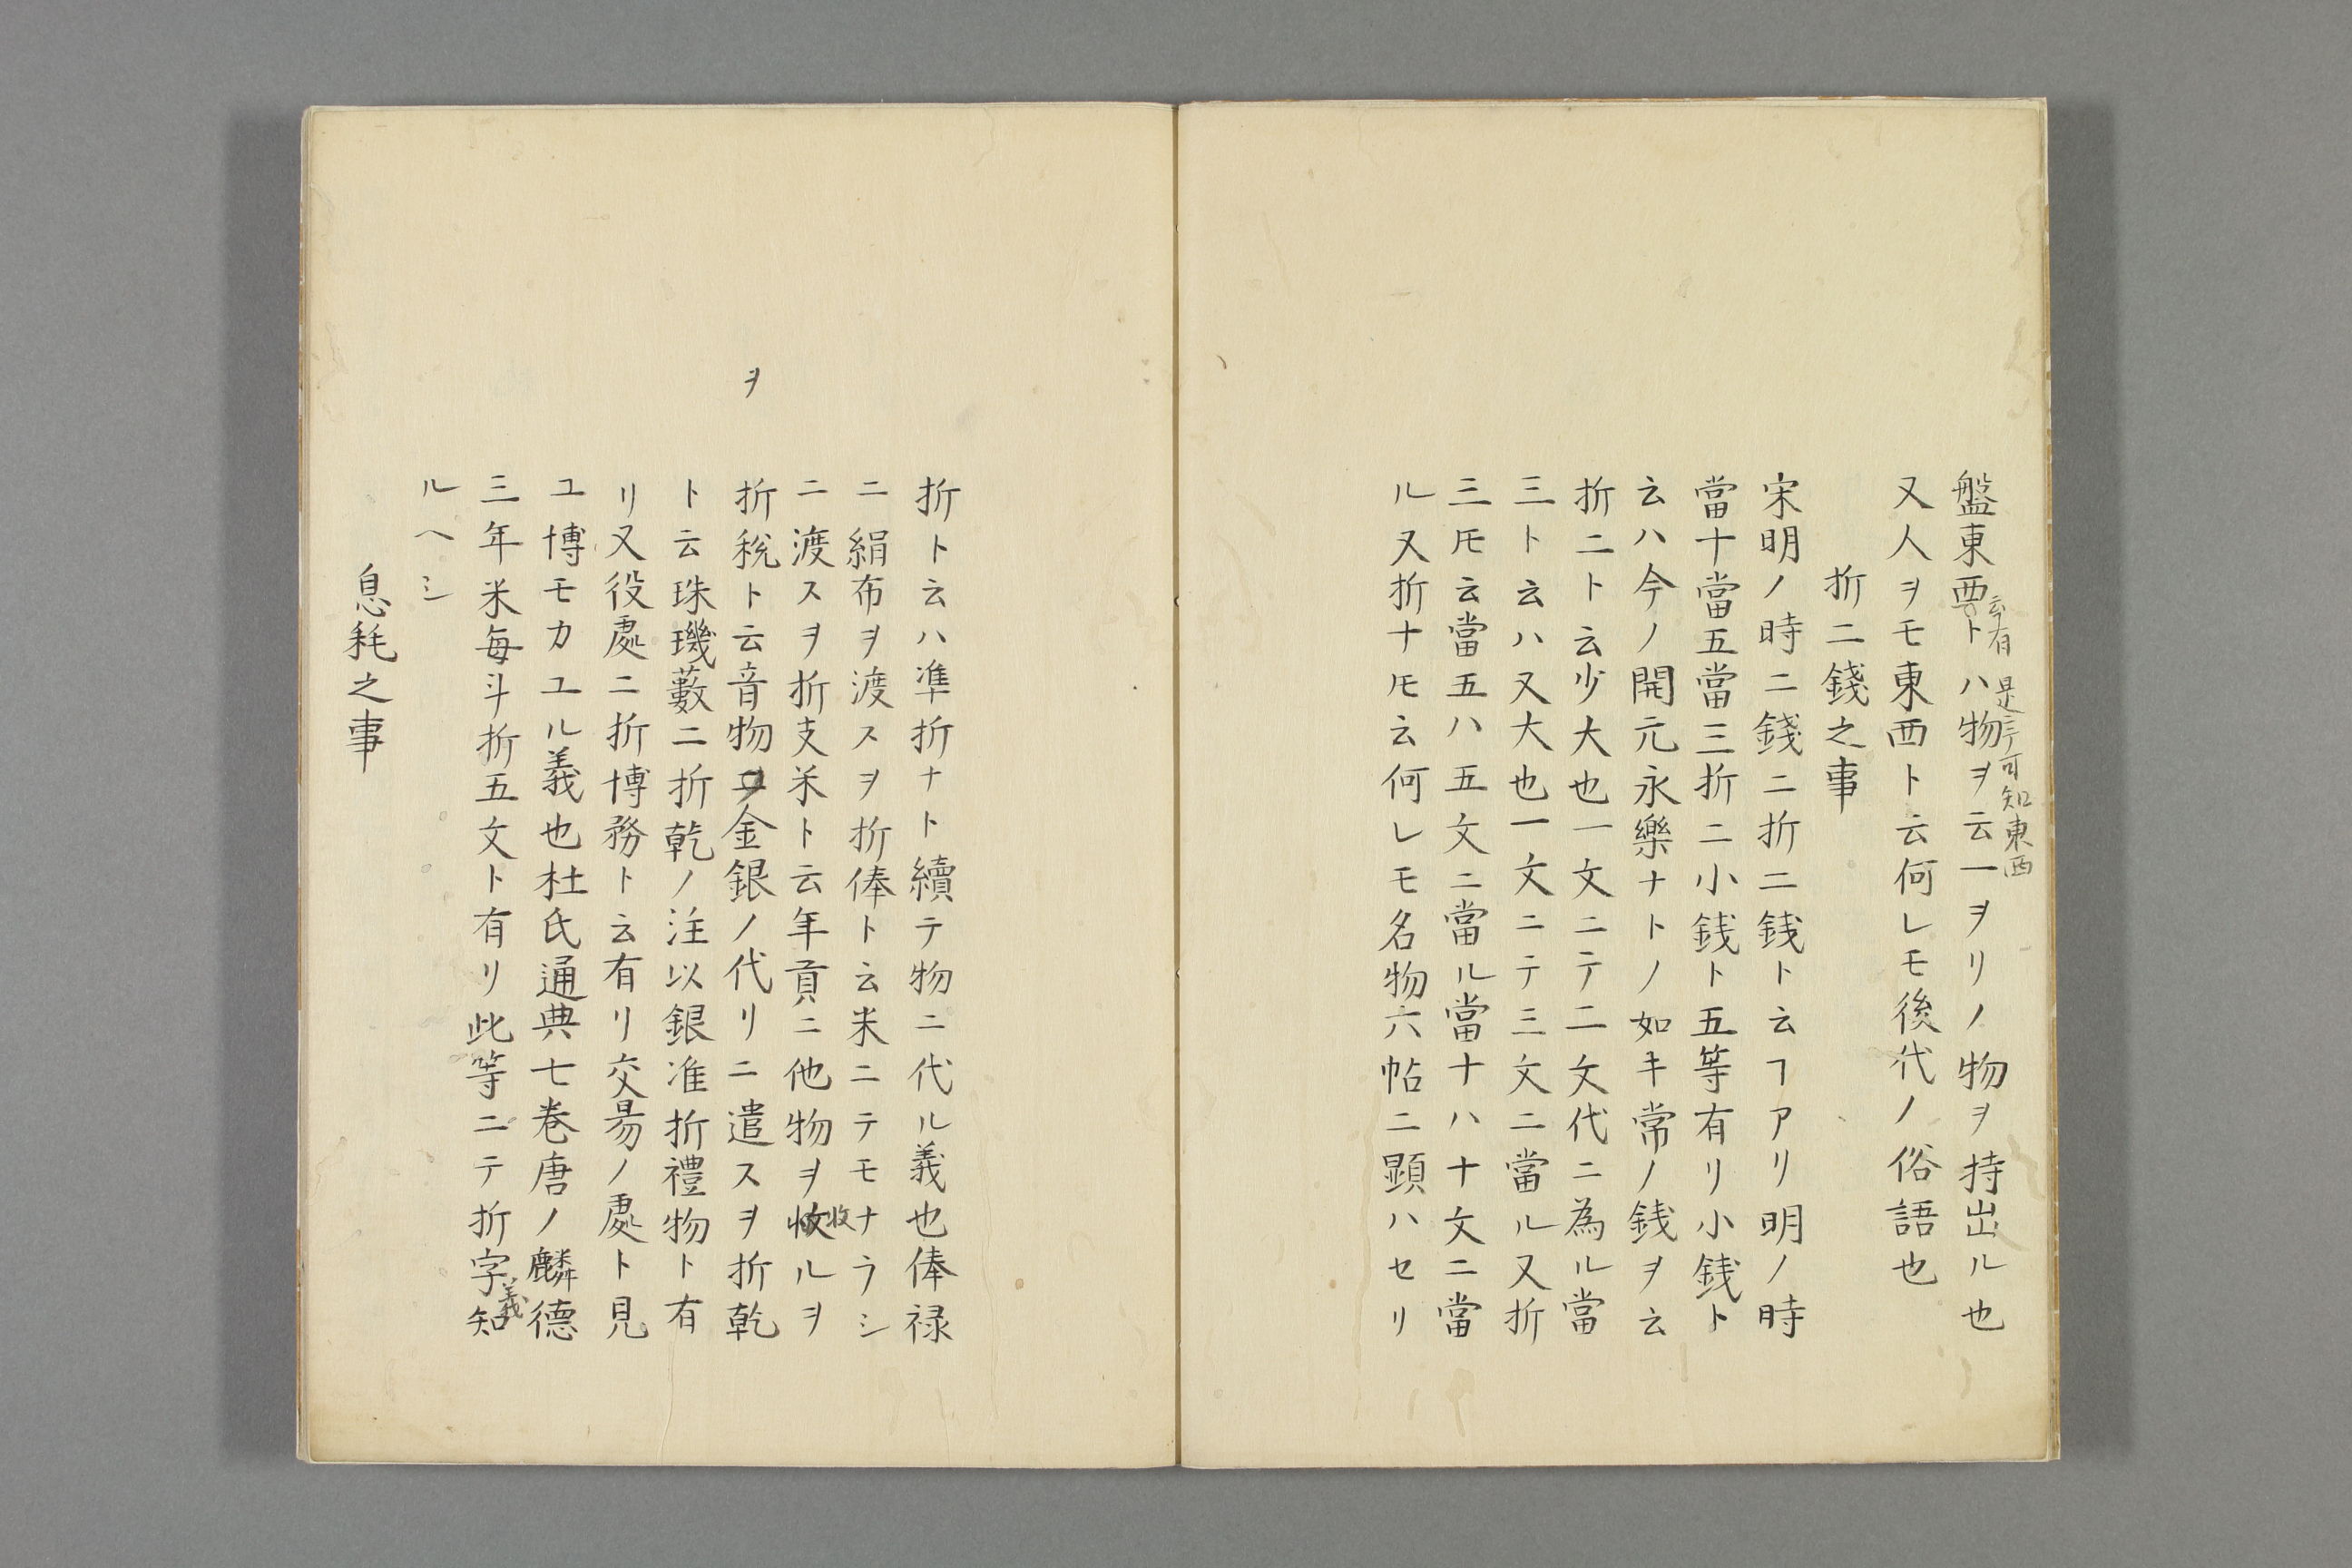 盤東西ト云有ハ物ヲ云一ヲリノ物ヲ持出ル也
是云可知東西
又人ヲモ東西ト云何レモ後代ノ俗語也
折二錢之事
宋明ノ時ニ錢ニ折二銭ト云ヿアリ明ノ時
當十當五當三折二小銭ト五等有リ小銭ト
云ハ今ノ開元永樂ナトノ如キ常ノ銭ヲ云
折二ト云少大也一文ニテ二文代ニ為ル當
三ト云ハ又大也一文ニテ三文ニ當ル又折
三𪜈云當五ハ五文ニ當ル當十ハ十文ニ當
ル又折ナ𪜈云何レモ名物六帖ニ顕ハセリ
折ト云ハ準折ナト續テ物ニ代ル義也俸禄
ニ絹布ヲ渡スヲ折俸ト云米ニテモナラシ
ニ渡スヲ折支米ト云年貢ニ他物ヲ收ルヲ
收
折税ト云音物ヲ金銀ノ代リニ遣スヲ折乾
ヲ
ト云珠璣藪ニ折乾ノ注以銀准折禮物ト有
リ又役處ニ折博務ト云有リ交易ノ處ト見
ユ博モカユル義也杜氏通典七巻唐ノ麟德
三年米毎斗折五文ト有リ此等ニテ折字義知
ルヘシ
息耗之事